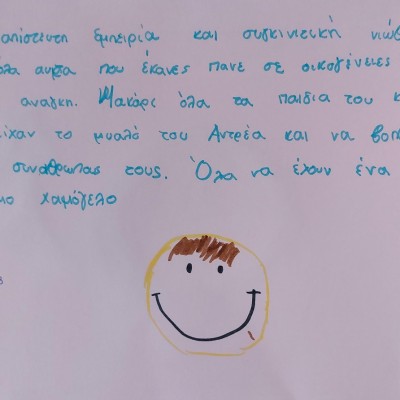 απίστευτη εμπειρία και συγκινητική νιώθ
όλα αυτα που έκανες πανε σε οικογένειες
αναγκη. Μακάρι όλα τα παιδια του κ
είχαν το μυαλό του Αντρέα και να βοη
συνάθρωπας τους. Όλα να έχουν ένα
χαμόγελο